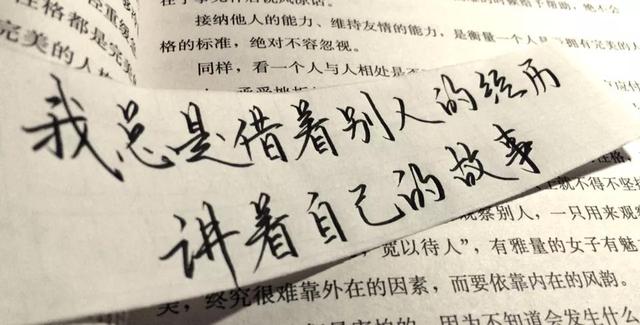 性格都是完美
完美的人格
接纳他人的能力、维持友情的能力，是衡量一个人是
拥有完美的人
格的标准，绝对不容忽视。
同样，看一个人与人相处是
我总是借着别人的经历
讲着自己的故事
就不得不坚
观察别人，一只用来观察
宽以待人”，有雅量的女子有魅
美，终究很难靠外在的因素，而要依靠内在的风韵。
因为不知道会发生什么